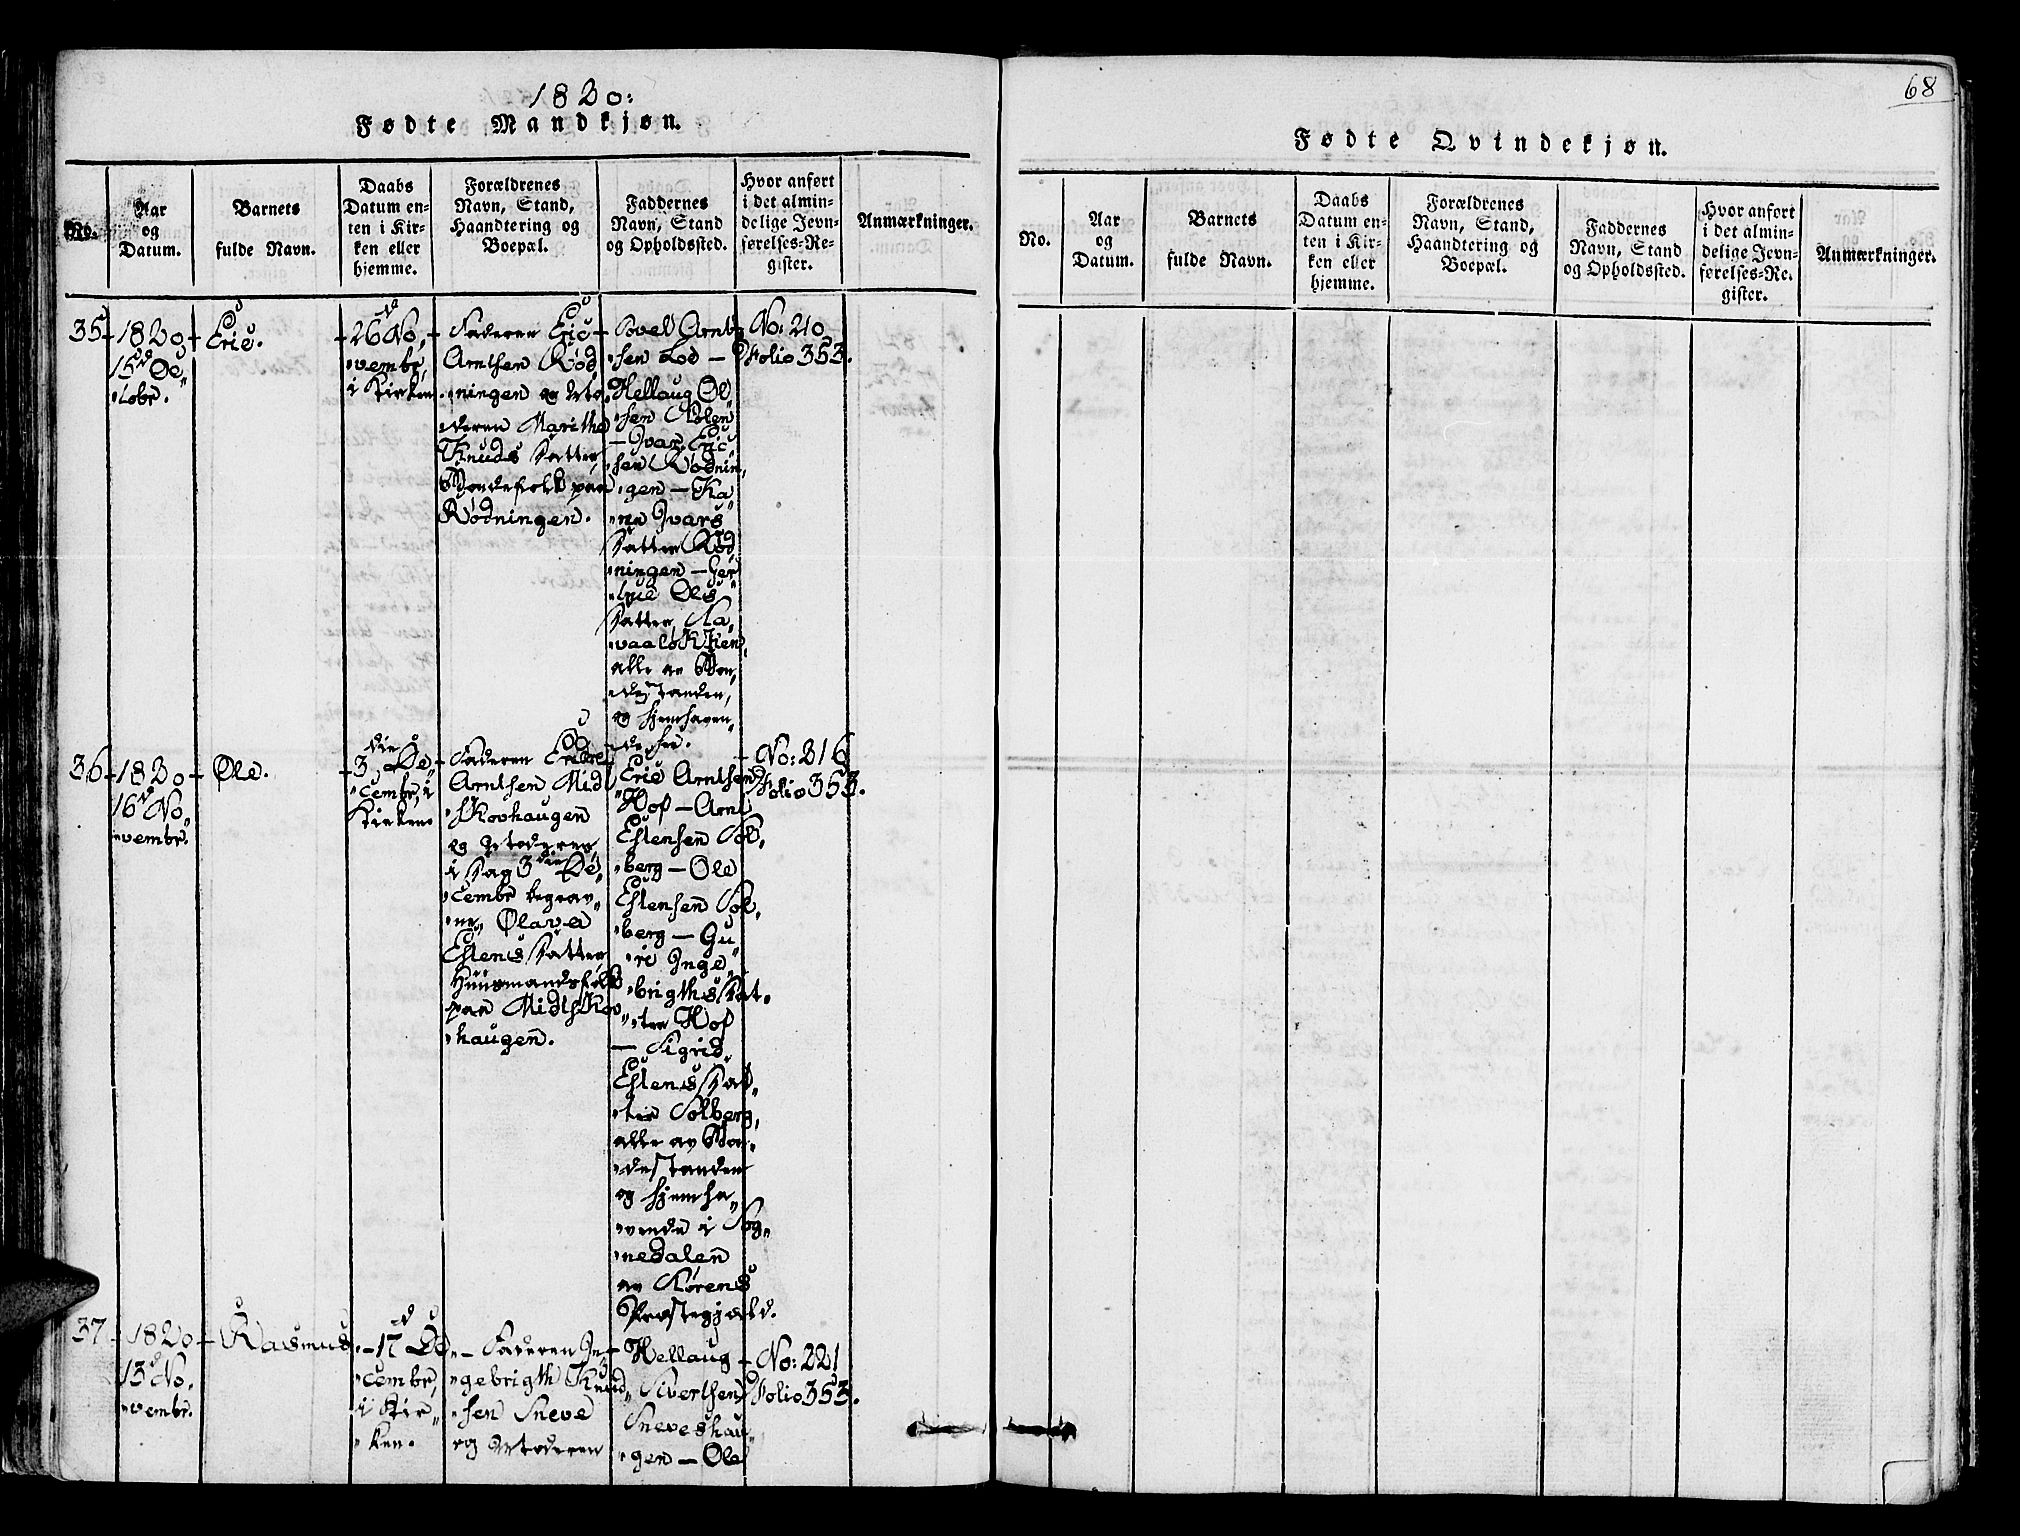 68
1820:
Fødte Mandkjøn.
No.
Aar
og
Datum.
Barnets
fulde Navn.
Daabs
Datum en-
ten i Kir-
ken eller
hjemme.
Forældrenes
Navn, Stand,
Haandtering og
Boepæl.
Faddernes
Navn, Stand
og Opholdssted.
Hvor anført
i det almin-
delige Jevn-
førelses-Re-
gister.
Anmærkninger.
35
1820
15d Oc„
„tobr.
Eric.
26d No„
„vembr,
i Kirken.
Faderen Eric
Arntsen Rød„
„ningen og Mo„
„deren Marithe
Knuds Datter,
Bondefolk paa
Rødningen.
Sivel Arnt„
„sen Lod —
Hellaug Ol„
„sen
— Ivar Eric„
„sen Rødnin„
„gen — Ka„
„ren Ivars
Datter Rød„
„ningen —
Ols
Datter,
alle av Bon„
„destanden,
og hjemhaven„
„de her.
No: 210
Folio 353.
36
1820
16d No„
„vembr.
Ole.
3die De„
„cembr, i
Kirken
Faderen
Arntsen Midt„
„skovhaugen
og Moderen,
i Dag 3die De„
„cembr begrav„
„ne, Olava
Estens Datter
Huusmandsfolk
paa Midtskov„
„haugen.
Eric Arntsen
Hof — Arnt
Estensen Sol„
„berg — Ole
Estensen Sol„
„berg — Gu„
„ri Inge„
„brigths Dat„
„ter Hof
— Sigrid
Estens Dat„
„ter Solberg,
alle av Bon„
„destanden
og hjemha„
„vende i Sog„
„nedalen
av Størens
Præstegjæld.
No: 216
Folio 353.
37
1820
13d No„
„vembr.
Rasmus
17d De„
„cembr,
i Kir„
„ken.
Faderen In„
„gebrigth Knud„
„sen Sneve
og Moderen
Hellaug
Sivertsen
Sneveshau„
„gen — Ole
No: 221
Folio 353.
Fødte Qvindekjøn.
No.
Aar
og
Datum.
Barnets
fulde Navn.
Daabs
Datum en-
ten i Kir-
ken eller
hjemme.
Forældrenes
Navn, Stand,
Haandtering og
Boepæl.
Faddernes
Navn, Stand
og Opholdssted.
Hvor anført
i det almin-
delige Jevn-
førelses-Re-
gister.
Anmærkninger.